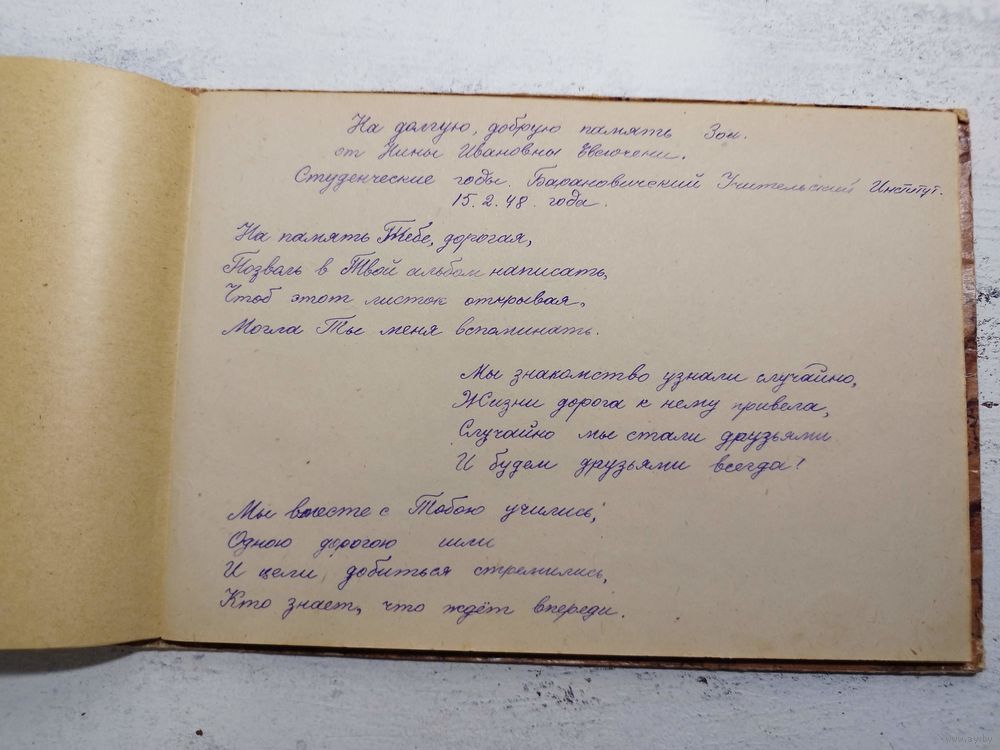 На долгую, добрую память Зои.
от Нины Ивановны Евсючени.
Студенческие годы. Барановичский Учительский Институт.
15.2.48. года.
На память Тебе, дорогая,
Позволь в Твой альбом написать,
Чтоб этот листок открывая,
Могла Ты меня вспоминать.
Мы знакомство узнали случайно,
Жизни дорога к нему привела,
Случайно мы стали друзьями
И будем друзьями всегда!
Мы вместе с Тобою учились,
Одною дорогою шли
И цели, добиться стремились,
Кто знает, что ждёт впереди.
www.ay.by